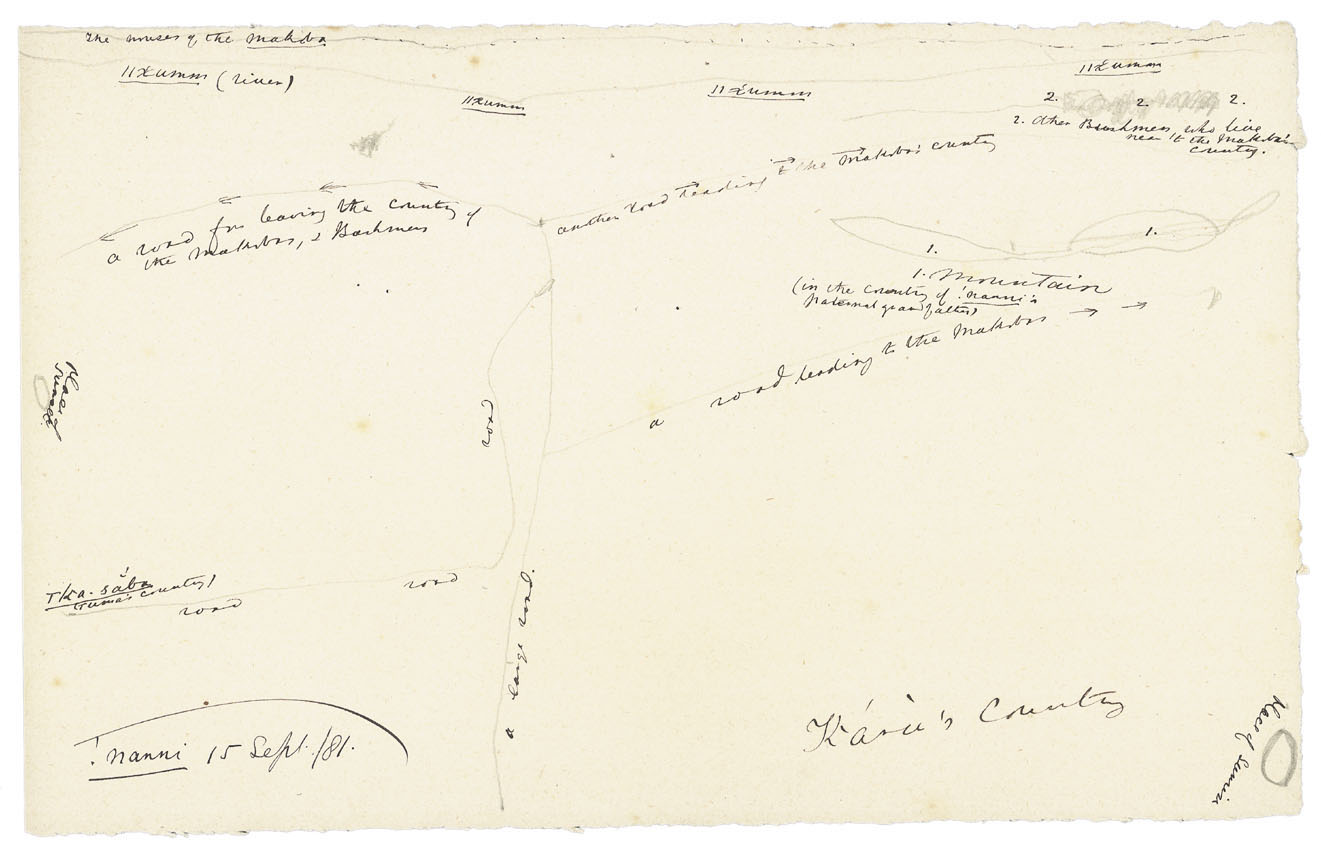 The houses of the Makoba
ǁXumm (river)
ǁXumm
ǁXumm
ǁXumm
2. 2. 2.
2. Other Bushmen, who live
near to the Makoba's
country.
another road leading to the Makoba's country
a road for leaving the country of
the Makobas, & Bushmen
1. 1.
1. Mountain
(in the country of !nanni's
Maternal grandfather)
a road leading to the Makobas
Place of
Sunset
road
(Tuma's country)
road
road
a large road
Káru's Country
!nanni 15 Sept./81.
Place of Sunrise